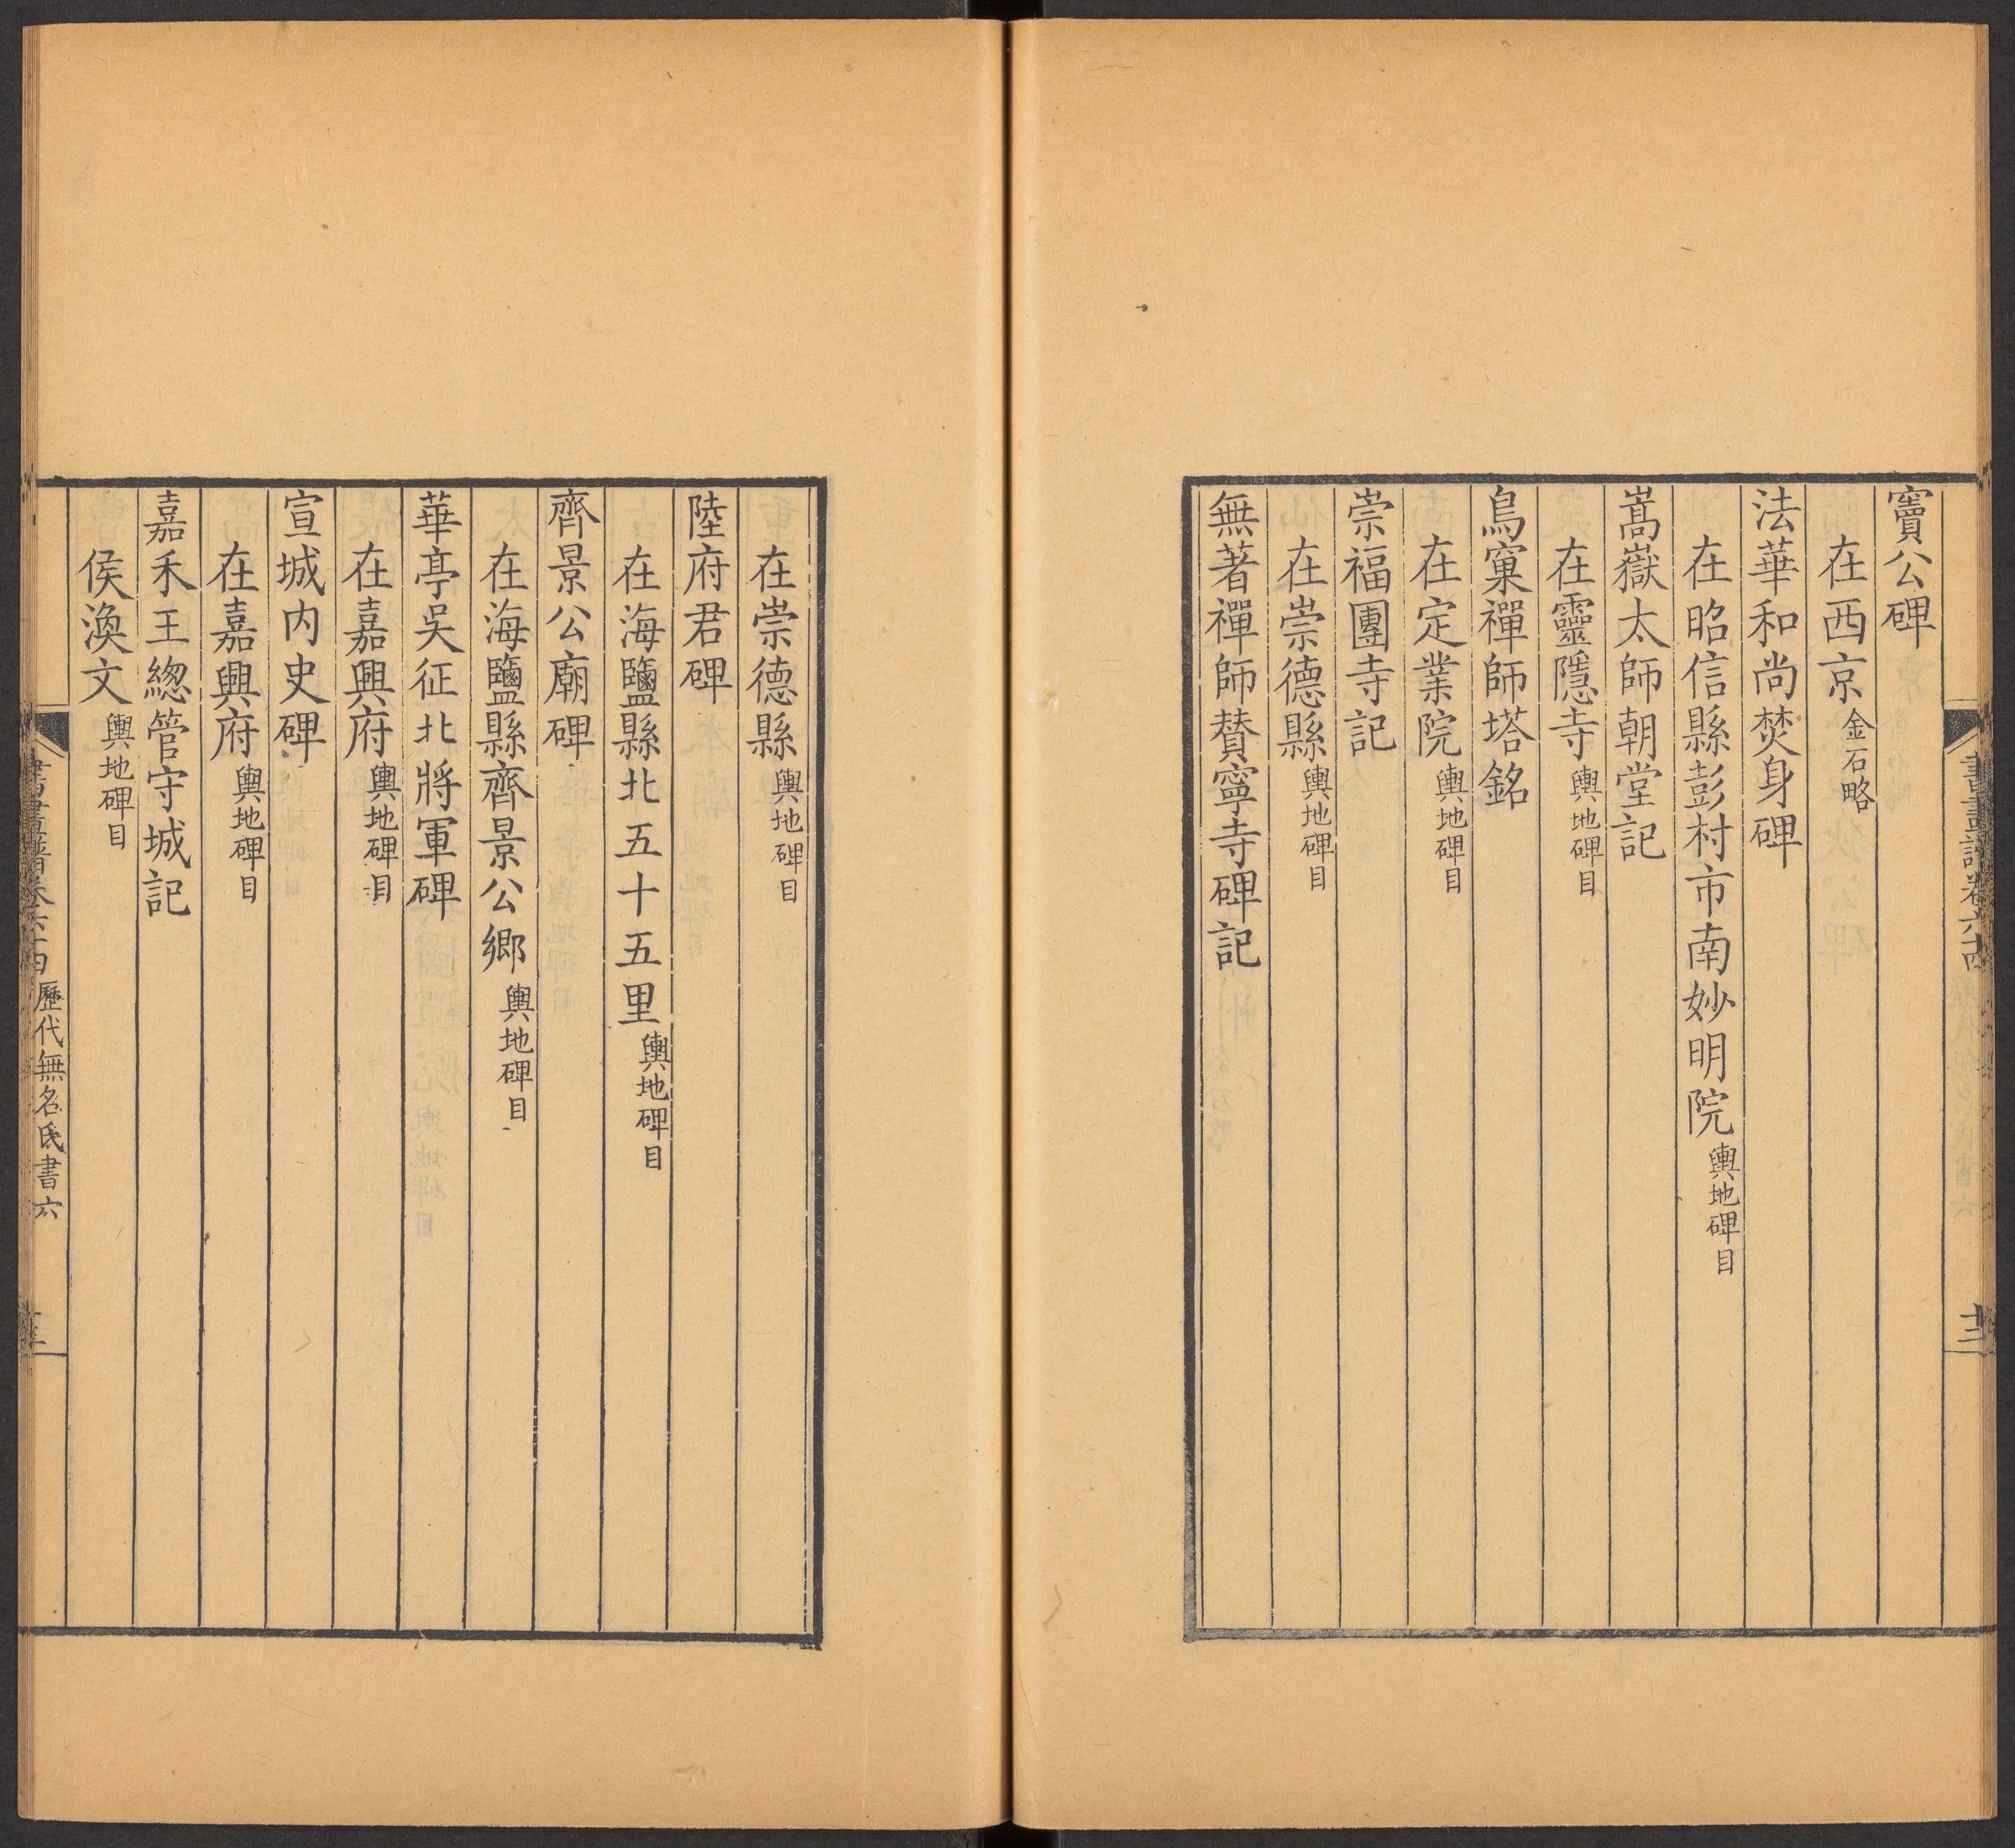 竇公碑
在西京金石略
法華和尚焚身碑
在昭信縣彭村市南妙明院輿地碑目
嵩嶽太師朝堂記
在靈隱寺輿地碑目
鳥窠禪師塔銘
在定業院輿地碑目
崇福團寺記
在崇德縣輿地碑目
無著禪師贊寧寺碑記
在崇德縣輿地碑目
陸府君碑
在海鹽縣北五十五里輿地碑目
齊景公廟碑
在海鹽縣齊景公鄉輿地碑目
華亭吳征北將軍碑
在嘉興府輿地碑目
宣城內史碑
在嘉興府輿地碑目
嘉禾王總管守城記
侯渙文輿地碑目
書畫譜卷六十四 歷代無名氏書六 十三